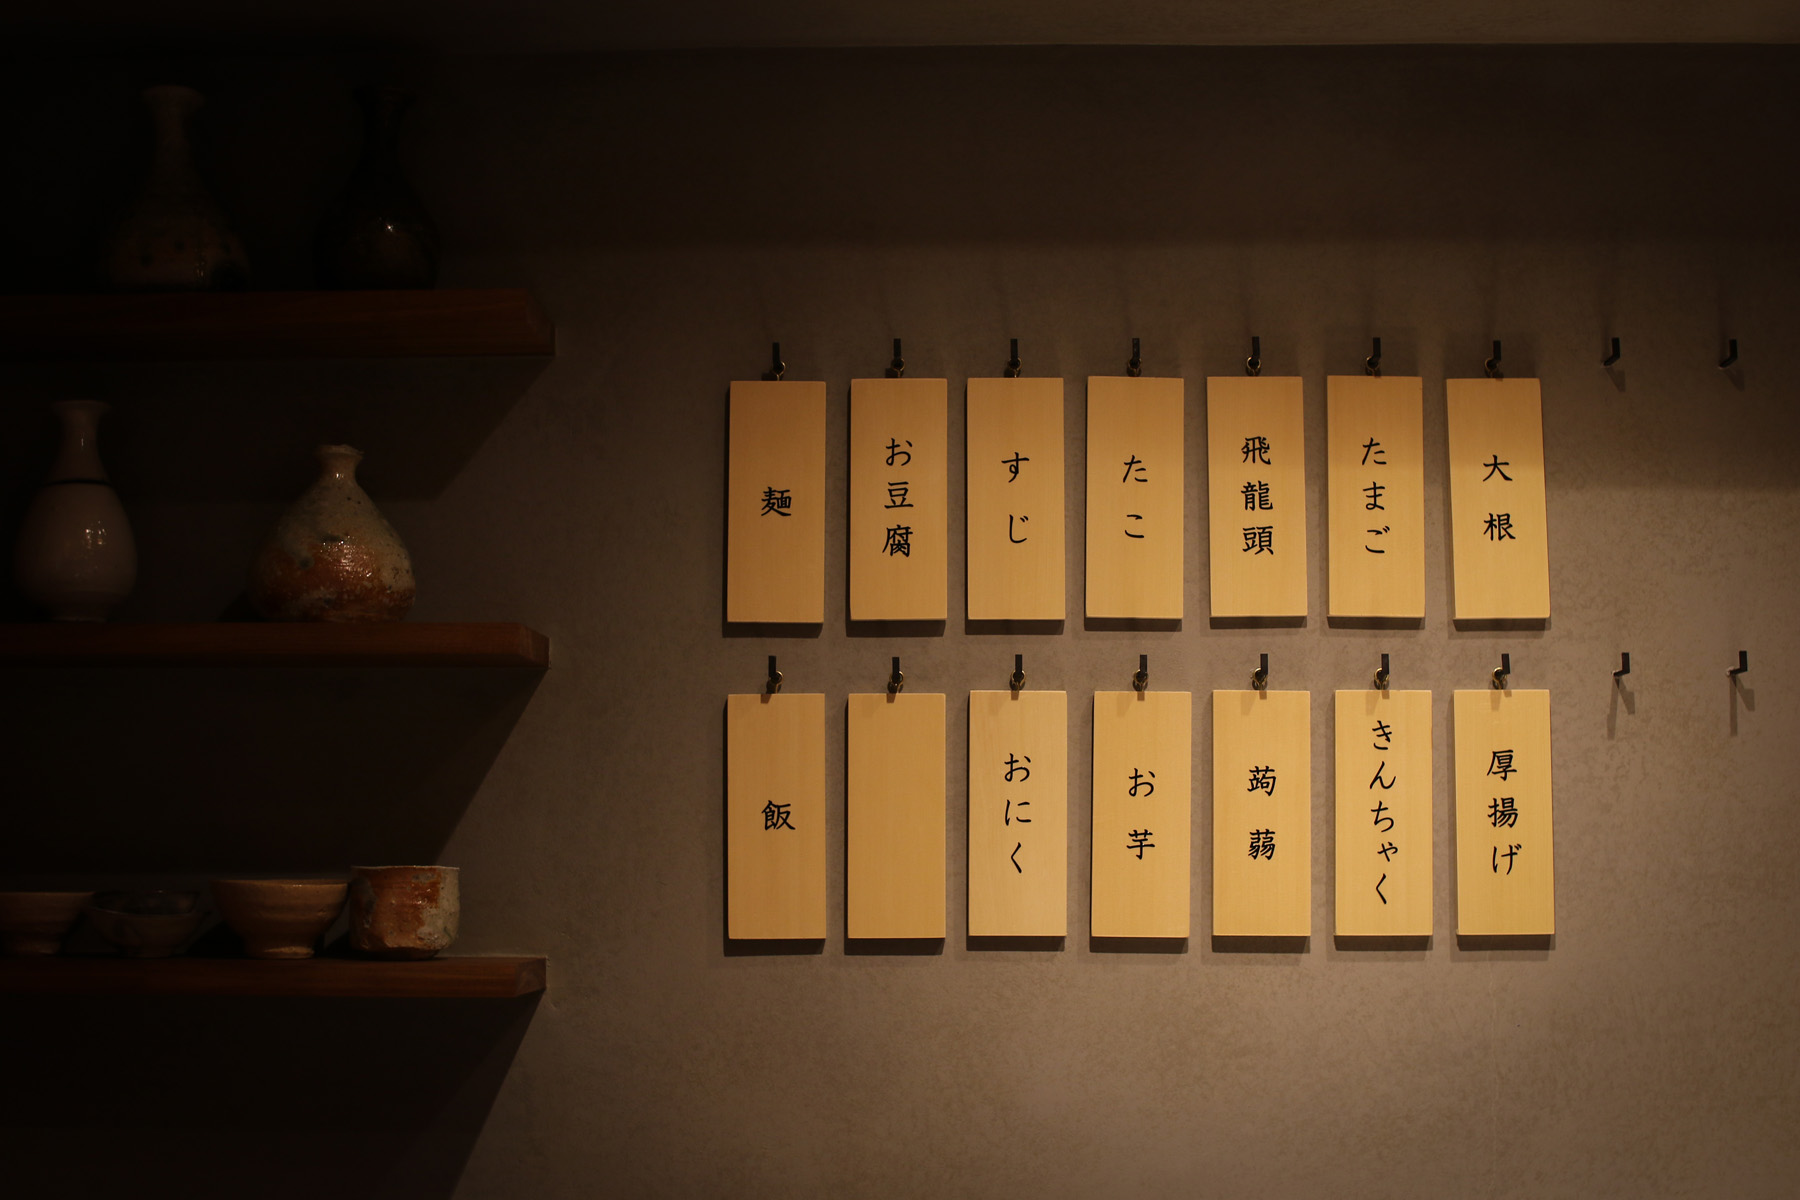 大根
たまご
飛龍頭
たこ
すじ
お豆腐
麺
厚揚げ
きんちゃく
蒟蒻
お芋
おにく
飯